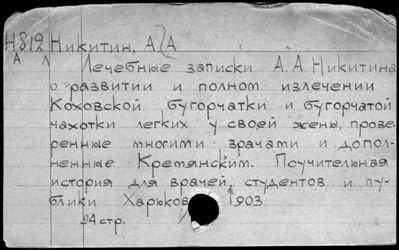 Н812 Никитин, А. А
А Л
Лечебные записки А. А Никитина
о развитии и полном излечении
Коховской бугорчатки и бугорчатой
чахотки легких у своей жены, прове-
ренные многими врачами и допол-
ненные Кремянским. Поучительная
история для врачей, студентов и пу-
блики Харьков 1903.
94 стр.